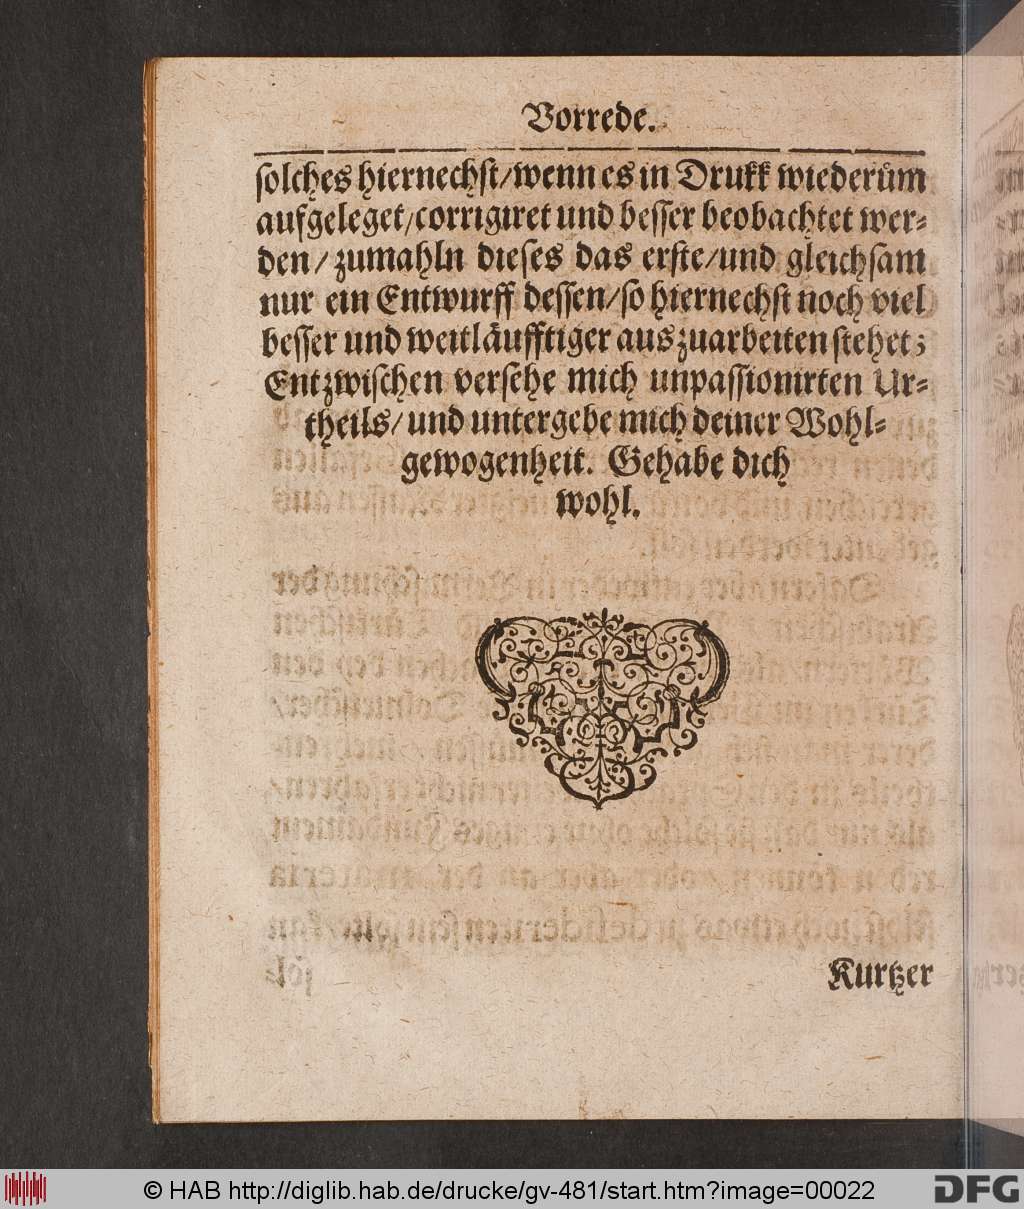 Vorrede.
solches hiernechst/wenn es in Drukk wiederům
aufgeleget/corrigiret und besser beobachtet wer⸗
den/zumahln dieses das erste/und gleichsam
nur ein Entwurff dessen/so hiernechst noch viel
besser und weitläufftiger auszuarbeiten stehet;
Entzwischen versehe mich unpassionirten Ur⸗
theils/und untergebe mich deiner Wohl⸗
gewogenheit. Gehabe dich
wohl.
Kurtzer
© HAB http://diglib.hab.de/drucke/gv-481/start.htm?image=00022
DFG